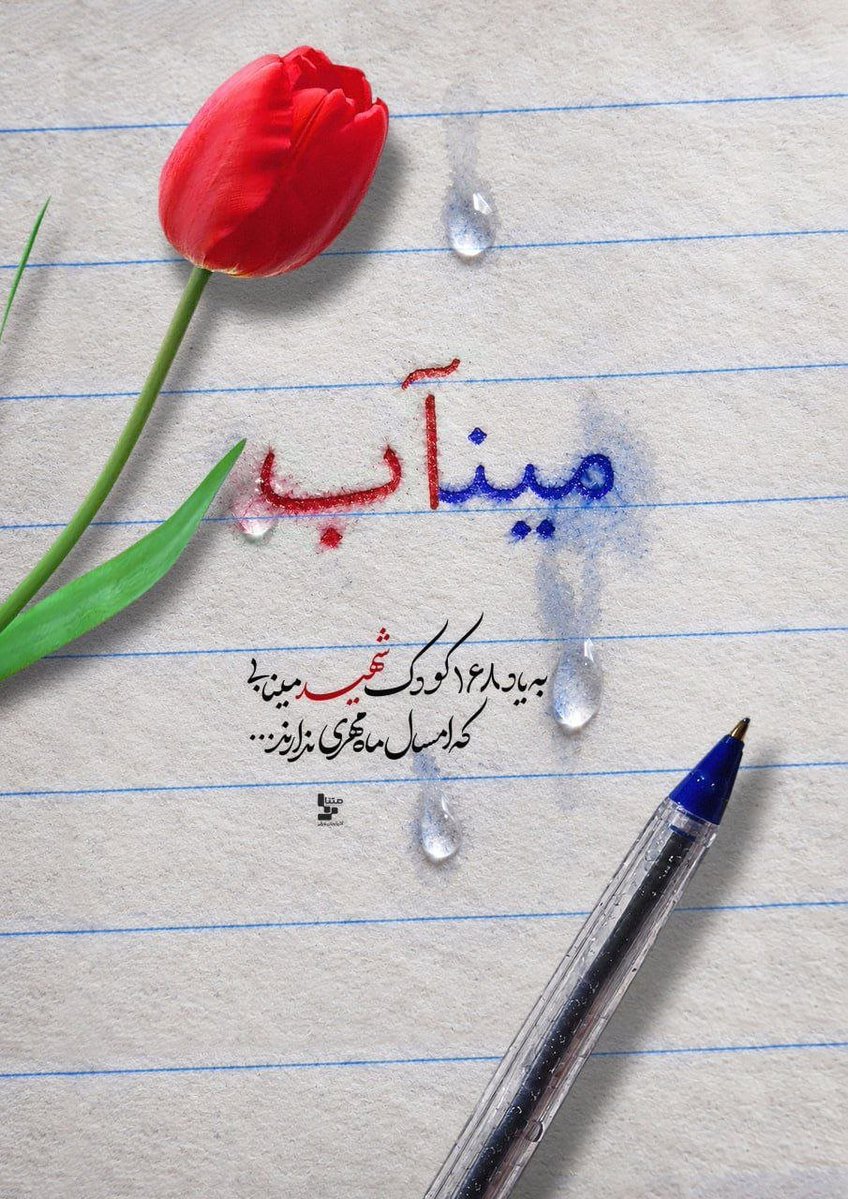 مینآب
به یاد ۱۶۸ کودک شهید مینابی
که امسال ماه مهری ندارند...
متنا